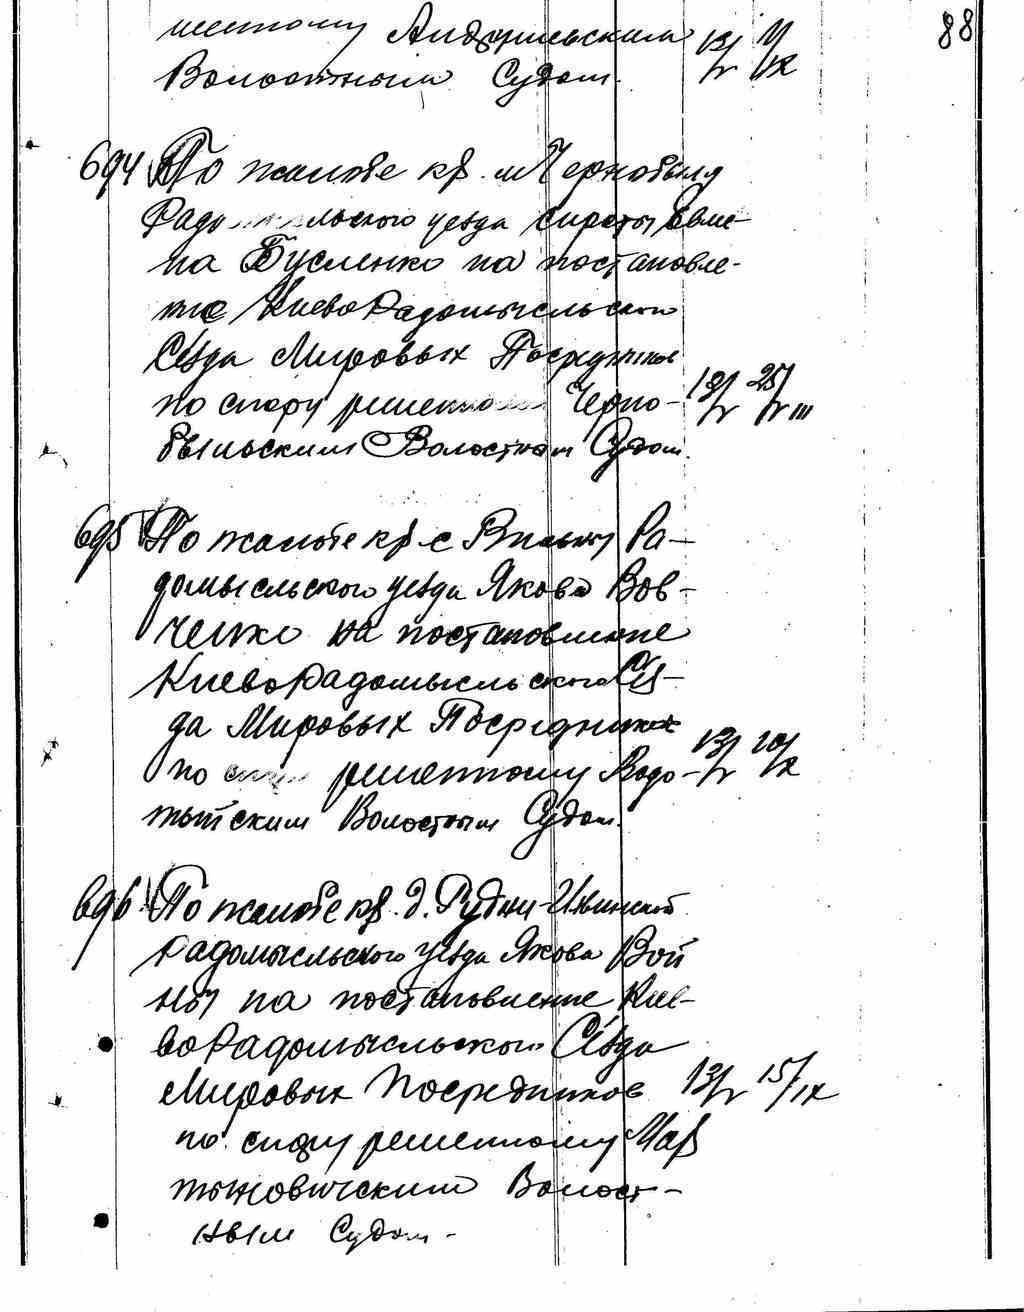 88
шенному Андрушевским 13/V 11/IX
Волостным Судом.
694 По жалобе кр. м Чернобыля
Радомысльского уезда сироты
на Бусленко на постановле-
ние Киево Радомысльского
Съезда Мировых Посредников
по спору решенному Черно- 13/V 25/VIII
быльским Волостным Судом.
695 По жалобе кр с Ра-
домысльского уезда Якова Вов-
ченко на постановление
Киево Радомысльского Съез-
да Мировых Посредников
по спору решенному 13/V 10/X
Волостным Судом.
696 По жалобе кр. д. Рудни-Ильинской
Радомысльского уезда Якова Вой
ны на постановление Кие-
во Радомысльского Съезда
Мировых Посредников 13/V 15/IX
по спору решенному Мар
тыновическим Волост-
ным Судом.-